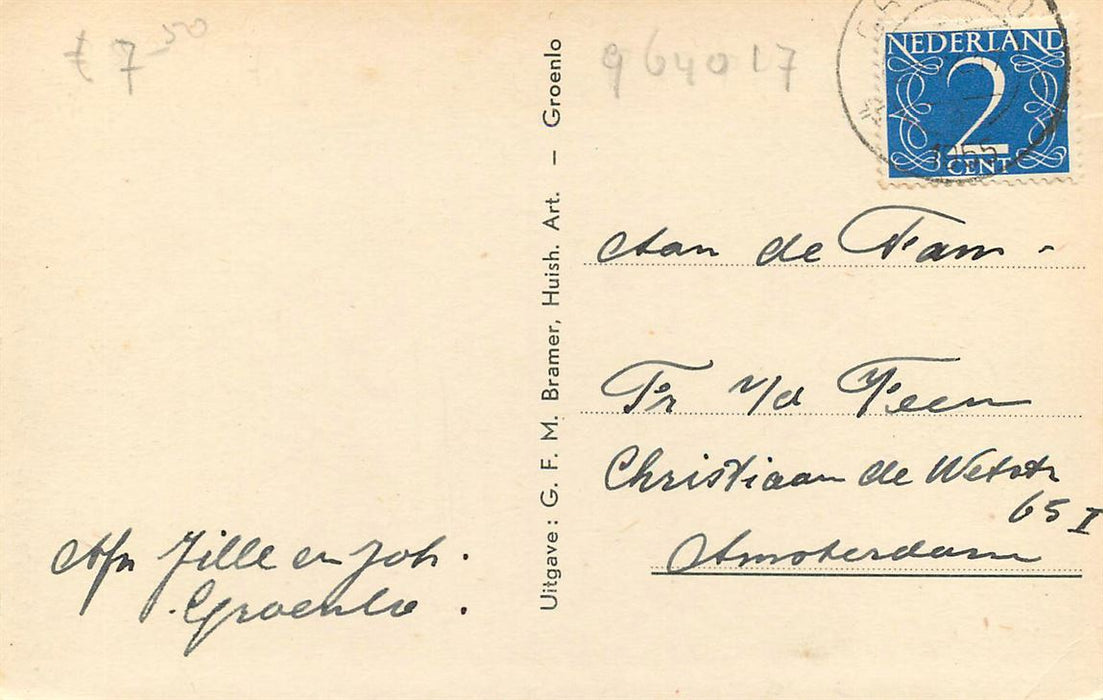 € 7-50
964017
NEDERLAND
2
CENT
1955
Uitgave: G. F. M. Bramer, Huish. Art. – Groenlo
Aan de Fam.
Fr v/d Veen
Christiaan de Wetstr
65 I
Amsterdam
Afz Jille en Joh.
Groenlo.